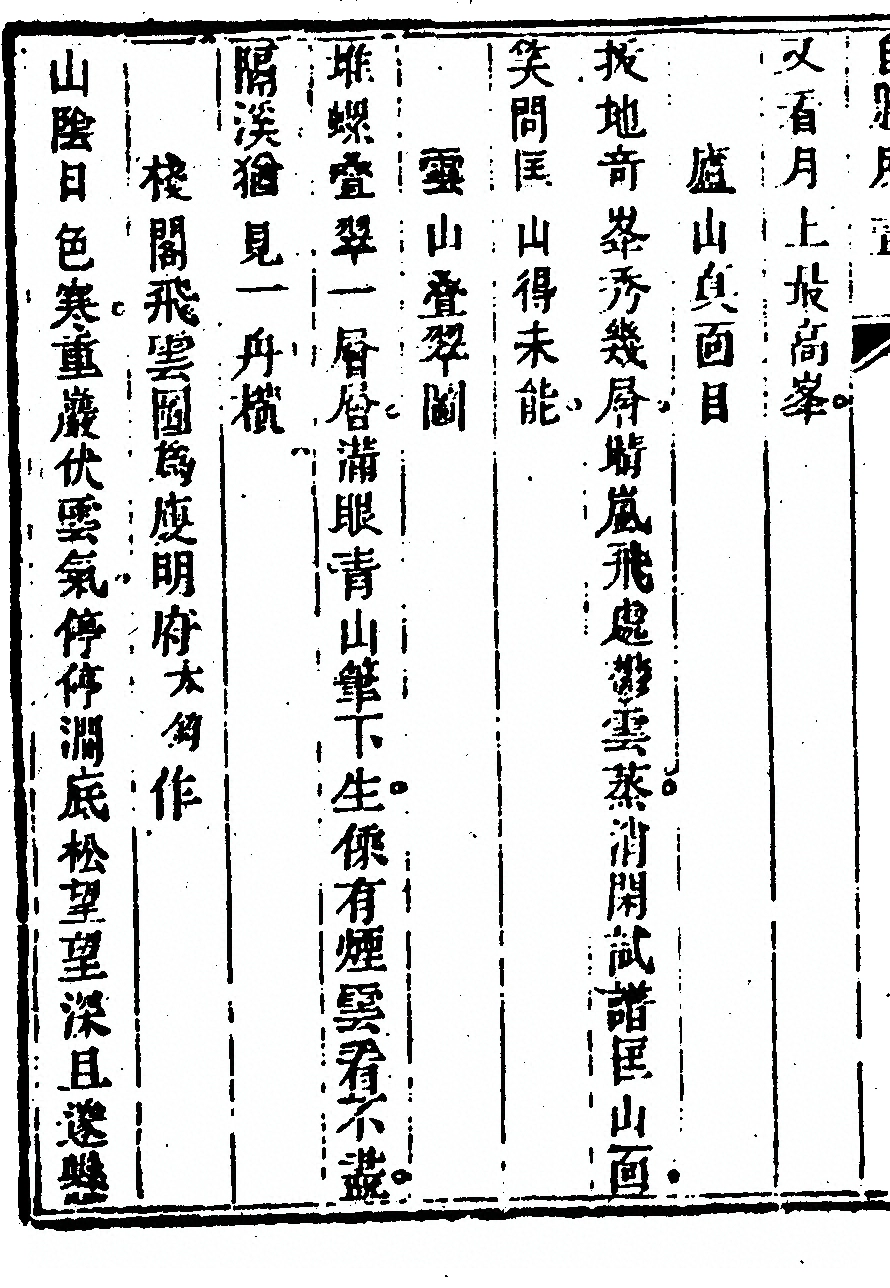 又看月上最高峯
廬山真面目
拔地奇峯秀幾層晴嵐飛處帶雲蒸消閑試譜匡山面
笑問匡山得未能
雲山叠翠圖
堆螺叠翠一層層滿眼青山筆下生係有煙雲看不盡
隔溪猶見一舟橫
棧閣飛雲圖為慶明府太鈞作
山陰日色寒重巖伏雲氣停停澗底松望望深且邃懸